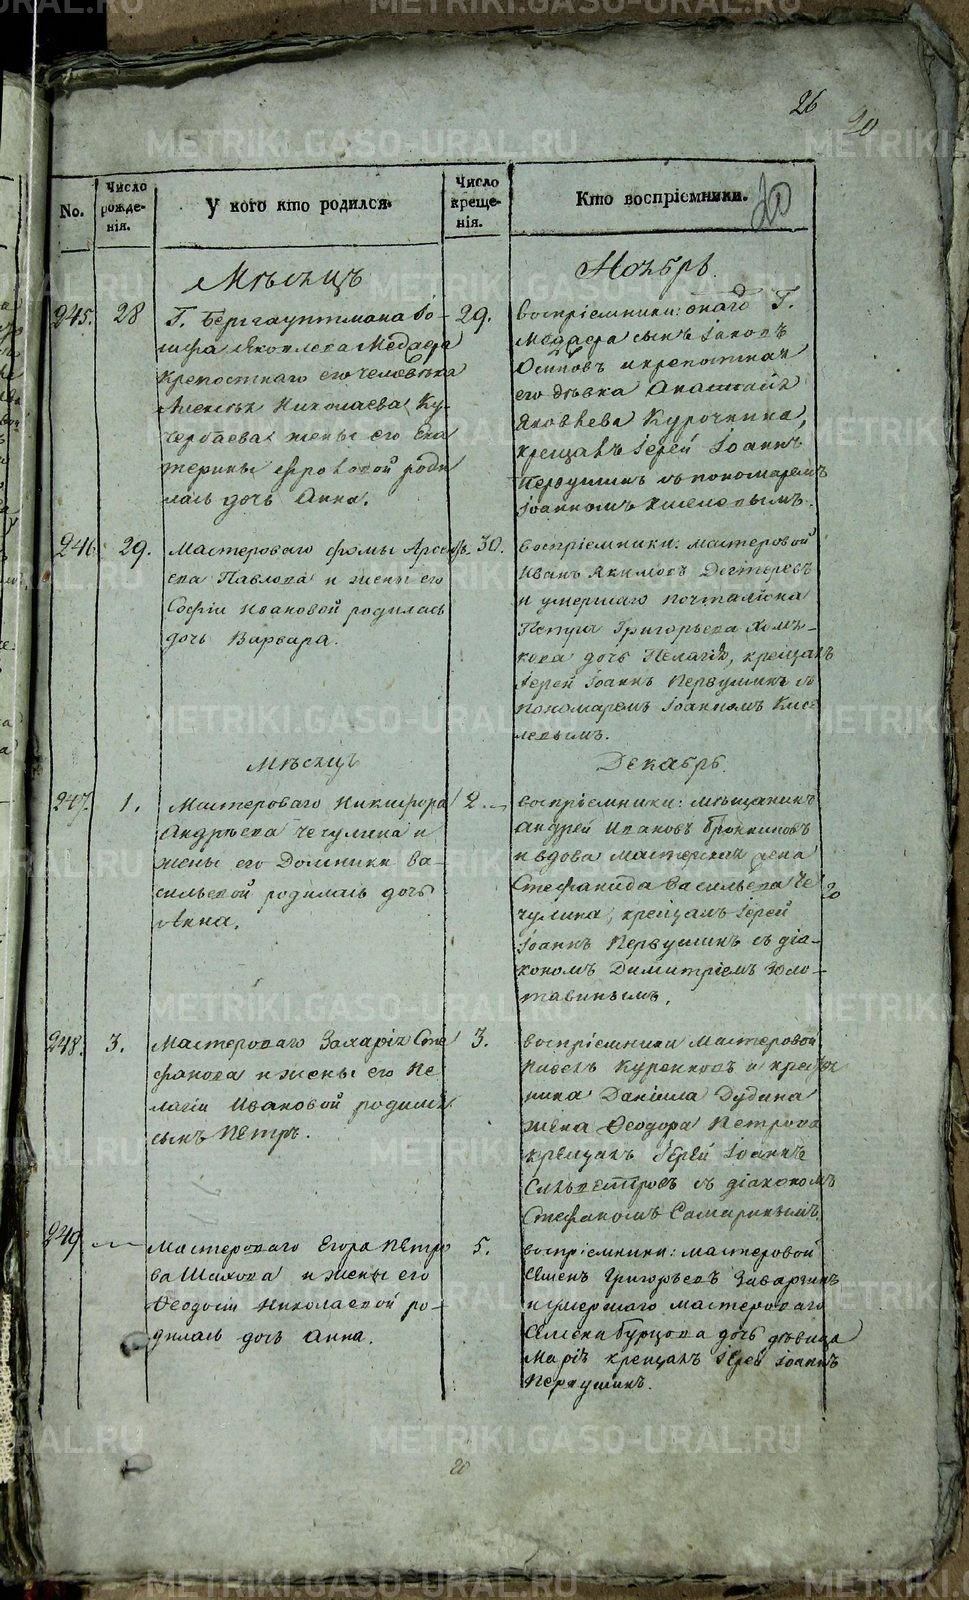 26
20
No.
Число рожде-нія.
У кого кто родился.
Число креще-нія.
Кто воспріемники.
Мѣсяцъ
Ноябрь.
245.
28
Г. Бергауптмана Іо-
сифа Яковлева Меджера
крепостнаго его человѣка
Алексѣя Николаева Ку-
чербаева жены его Ека
терины Фроловой роди
лась дочь Анна.
29.
воспріемники: онаго Г.
Меджера сынъ Іаковъ
Осиповъ и крепостная
его дѣвка Анастасія
Яковлева Курочкина,
крещалъ Іерей Іоаннъ
Первушинъ съ пономаремъ
Іоанномъ Киселевымъ.
246.
29.
Мастероваго Фомы Арсенье-
ева Павлова и жены его
Софіи Ивановой родилась
дочь Варвара.
30.
воспріемники: мастеровой
Иванъ Якимовъ Дегтеревъ
и умершаго почталіона
Петра Григорьева Хомя-
кова дочь Пелагія, крещалъ
Іерей Іоаннъ Первушинъ съ
пономаремъ Іоанномъ Кисе
левымъ.
Мѣсяцъ
Декабрь.
247.
1.
Мастероваго Никифора
Андрѣева Чечулина и
жены его Домники Ва-
сильевой родилась дочь
Анна.
2.
воспріемники: мѣщанинъ
Андрей Ивановъ Бронниковъ
и вдова мастерская жена
Стефанида Васильева Че
чулина, крещалъ Іерей
Іоаннъ Первушинъ съ діа-
кономъ Димитріемъ Золо-
тавинымъ.
20
248.
3.
Мастероваго Захарія Сте
фанова и жены его Пе
лагіи Ивановой родился
сынъ Петръ.
3.
воспріемники мастеровой
Куренковъ и
Даніила Дудина
жена Феодора Петрова
крещалъ Іерей Іоаннъ
Сильвестровъ съ діакономъ
Стефаномъ Самаринымъ.
249
Мастероваго Егора Петро
ва Шахова и жены его
Феодосіи Николаевой ро-
дилась дочь Анна.
5.
воспріемники: мастеровой
Семенъ Григорьевъ Заварзинъ
и умершаго мастероваго
Семена Бурцова дочь дѣвица
Марія крещалъ Іерей Іоаннъ
Первушинъ.
20
METRIKI.GASO-URAL.RU